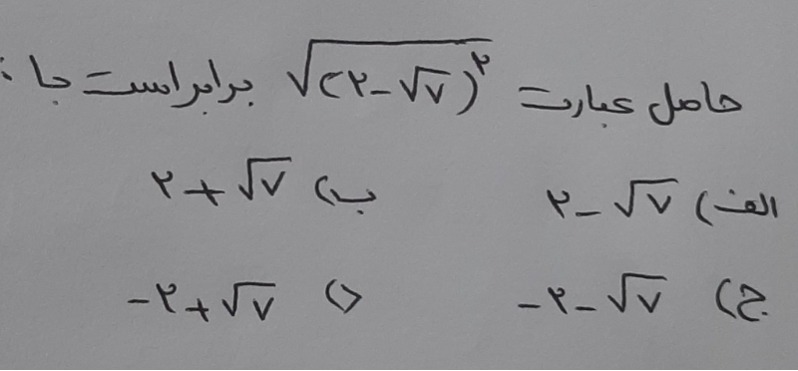 حاصل عبارت √(۲-√۷)^۲ برابراست با :
الف) ۲-√۷ ب) ۲+√۷
ج) -۲-√۷ د) -۲+√۷